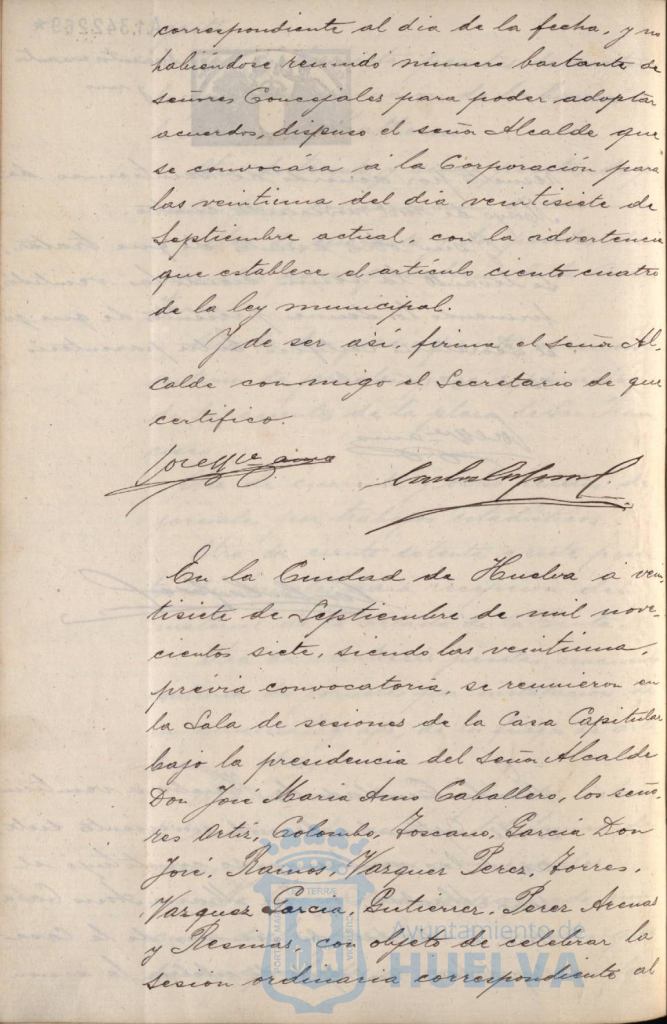 correspondiente al dia de la fecha, y no
habiéndose reunido número bastante de
señores Concejales para poder adoptar
acuerdos, dispuso el señor Alcalde que
se convocára á la Corporación para
las veintiuna del dia veintisiete de
Septiembre actual, con la advertencia
que establece el artículo ciento cuatro
de la ley municipal.
Y de ser así, firma el señor Al-
calde conmigo el Secretario de que
certifico.
En la Ciudad de Huelva á vein-
tisiete de Septiembre de mil nove-
cientos siete, siendo las veintiuna,
prévia convocatoria, se reunieron en
la Sala de sesiones de la Casa Capitular
bajo la presidencia del Señor Alcalde
Don José Maria Amo Caballero, los seño-
res Ortiz, Colombo, Toscano, Garcia Don
José, Ramos, Vazquez Perez, Torres,
Vazquez Garcia, Gutierrez, Perez Arenas
y Resmas, con objeto de celebrar la
sesión ordinaria correspondiente al
Ayuntamiento de
HUELVA